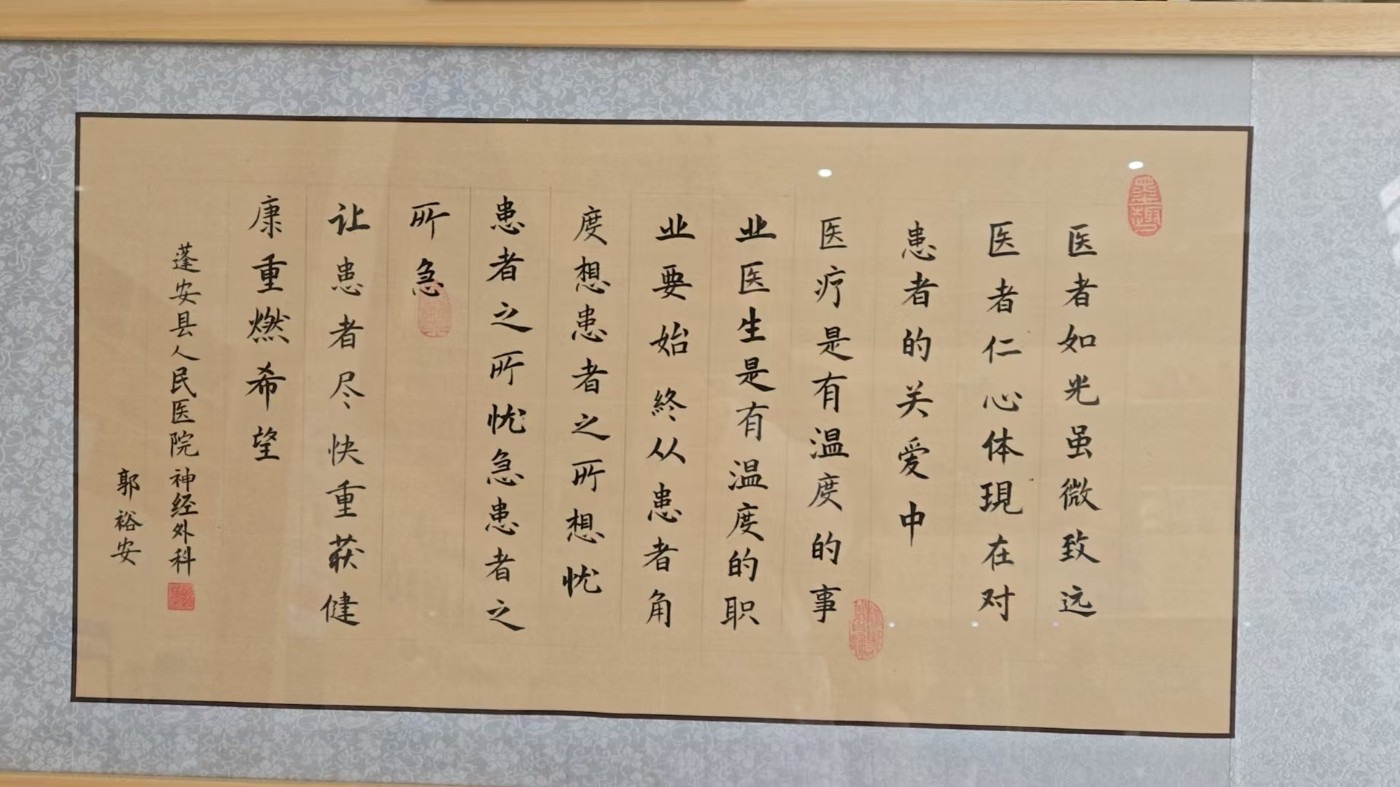 医者如光虽微致远
医者仁心体現在对
患者的关爱中
医疗是有温度的事
业医生是有温度的职
业要始終从患者角
度想患者之所想忧
患者之所忧急患者之
所急
让患者尽快重获健
康重燃希望
蓬安县人民医院神经外科
郭裕安